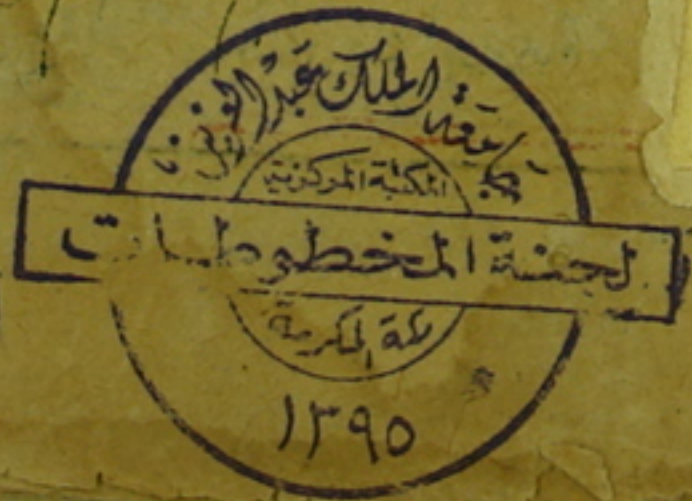 جامعة الملك عبد العزيز
المكتبة المركزية
لجنة المخطوطات
مكة المكرمة
١٣٩٥